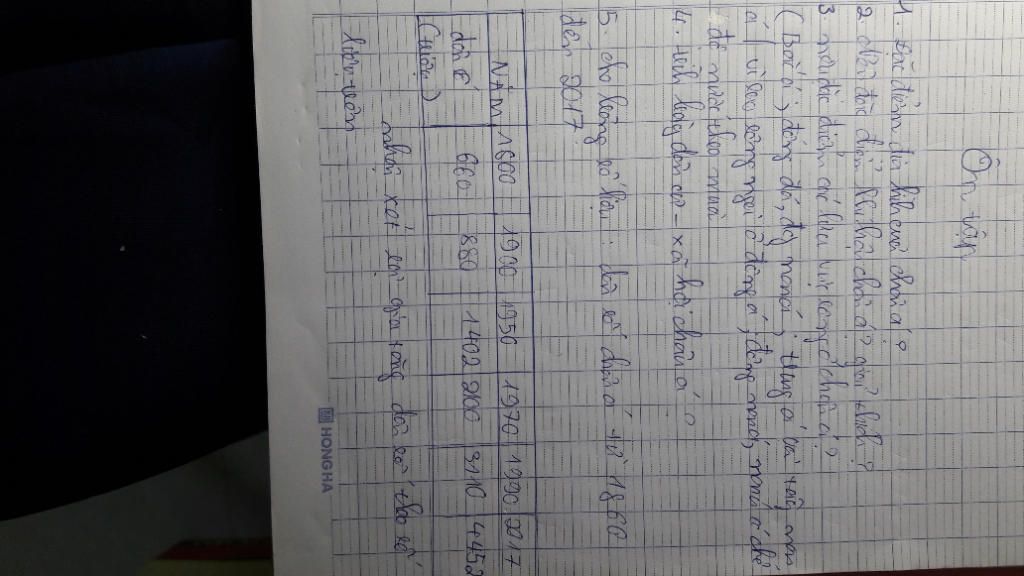 Ôn tập
1. Đặc điểm địa hình châu á ?
2. đặc điểm khí hậu châu á ? giải thích ?
3. nêu đặc điểm các khu vực sông ở châu á ?
( Bắc á ; đông á, đông nam á ; trung á và tây nam
á ( vì sao sông ngòi ở đông á, đông nam á, nam á chế
độ nước theo mùa
4. tình hình dân cư - xã hội châu á ?
5. cho bảng số liệu : dân số châu á từ 1800
đến 2017
NĂM 1800 1900 1950 1970 1990 2017
dân số 600 880 1402 2100 3110 4452
(triệu)
nhận xét sự gia tăng dân số theo số
liệu trên
HONG HA